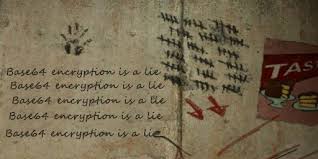 Base64 encryption is a lie
Base64 encryption is a lie
Base64 encryption is a lie
Base64 encryption is a lie
Base64 encryption is a lie
TAS